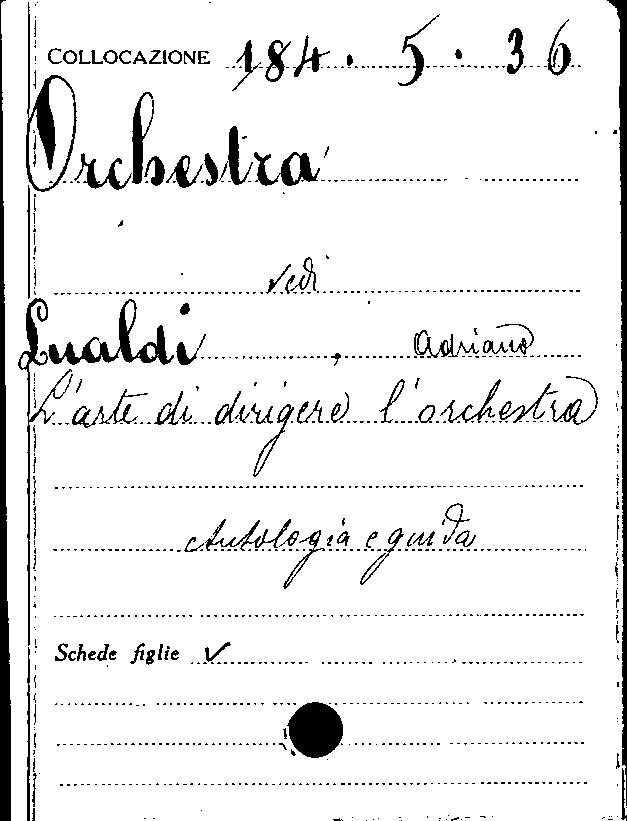 COLLOCAZIONE 184 . 5 . 36
Orchestra
vedi
Lualdi , Adriano
L'arte di dirigere l'orchestra
Antologia e guida
Schede figlie ✓